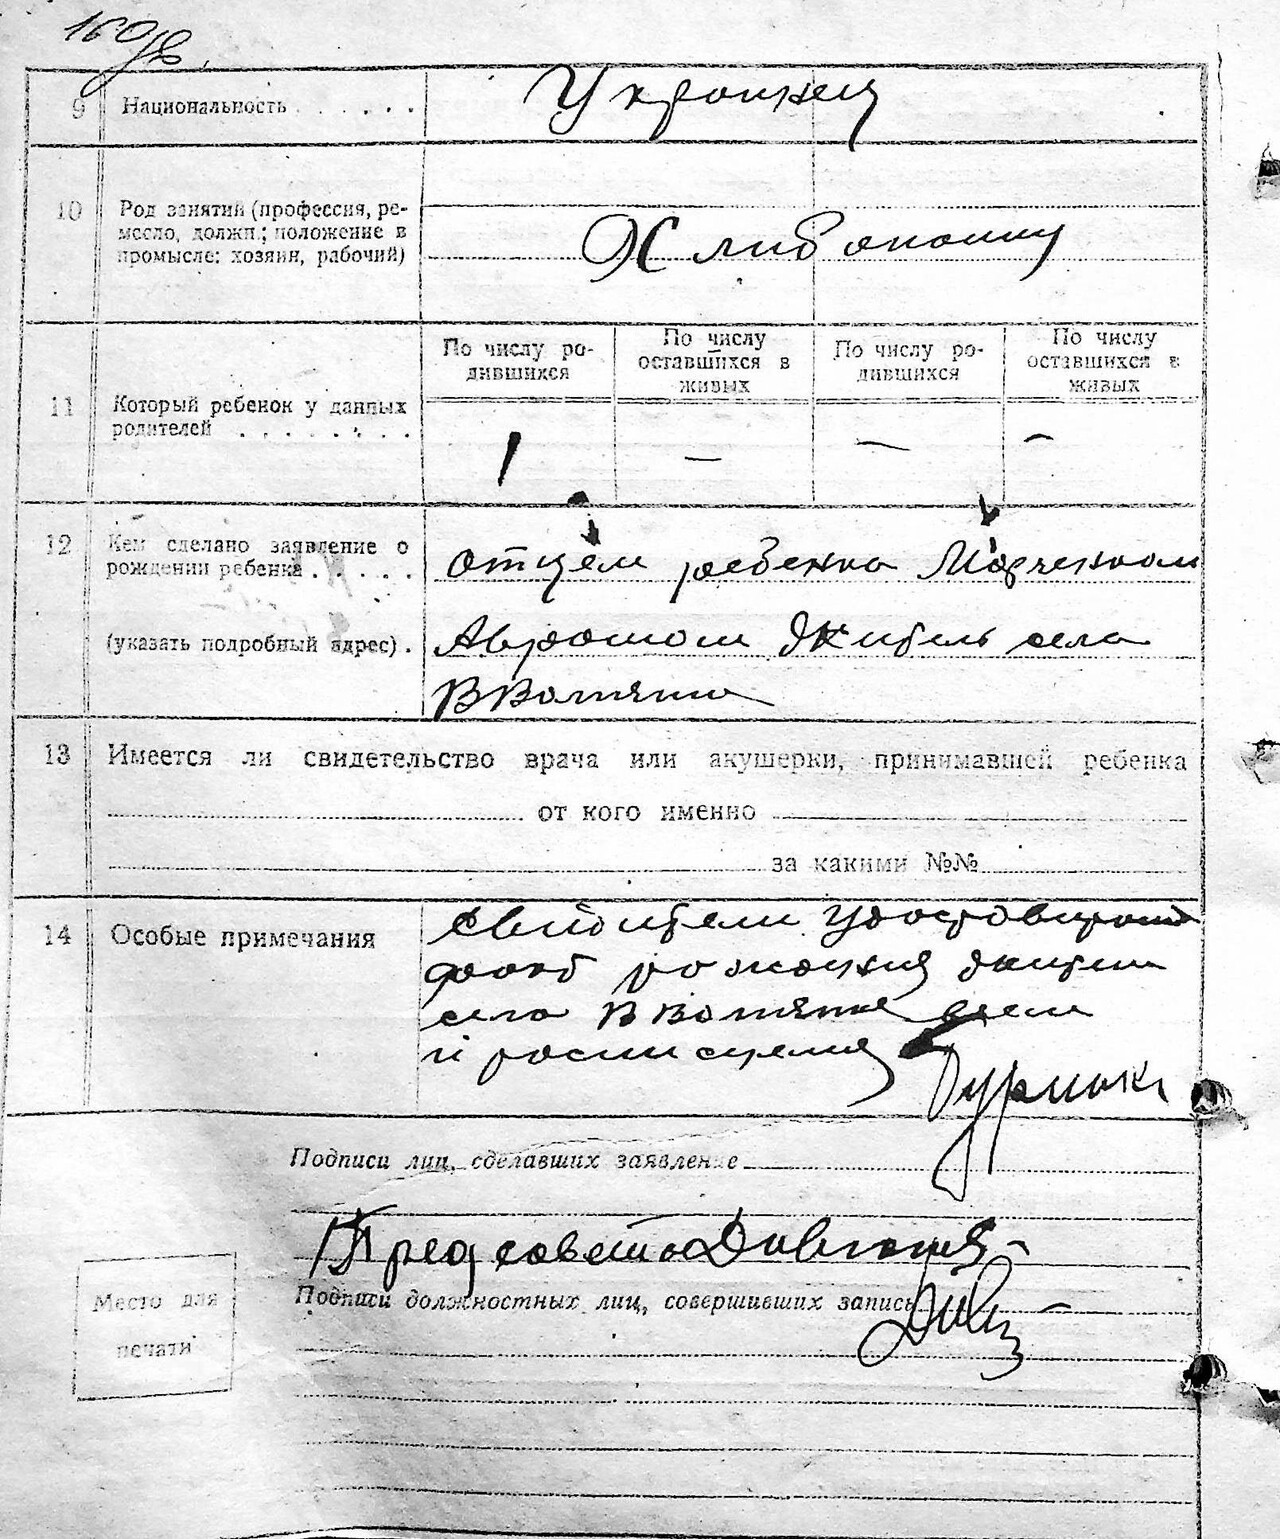 160
9 Национальность . . . . . . Украинец
10 Род занятий (профессия, ре-
месло, должн.; положение в
промысле: хозяин, рабочий)
Хлибопашец
11 Который ребенок у данных
родителей . . . . . . . .
По числу ро-
дившихся
По числу
оставшихся в
живых
По числу ро-
дившихся
По числу
оставшихся в
живых
1 — — —
12 Кем сделано заявление о
рождении ребенка . . . . .
(указать подробный адрес) .
отцем ребенка Марченком
Аврамом житель села
13 Имеется ли свидетельство врача или акушерки, принимавшей ребенка
от кого именно
за какими №№
14 Особые примечания
Свидители
села
и росписуемся
Подписи лиц, сделавших заявление
Пред совета
Подписи должностных лиц, совершивших запись
Место для
печати